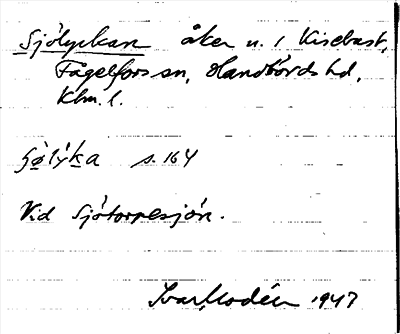 Sjölyckan åker u. 1 Kisebast,
Fågelfors sn, Handbörds hd,
Klm. l.
ʃø̀lýka s. 164
Vid Sjötorpesjön.
Ivar Modéer 1947